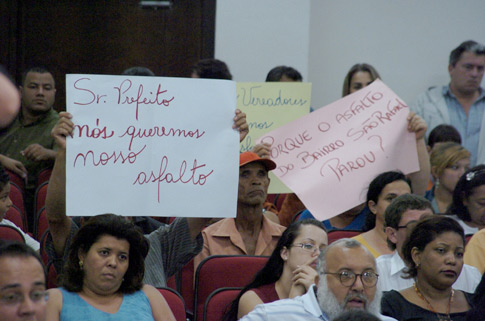 Sr. Prefeito
nós queremos
nosso
asfalto
Vereadores
PORQUE O ASFALTO
DO BAIRRO SÃO RAFAEL
PAROU?